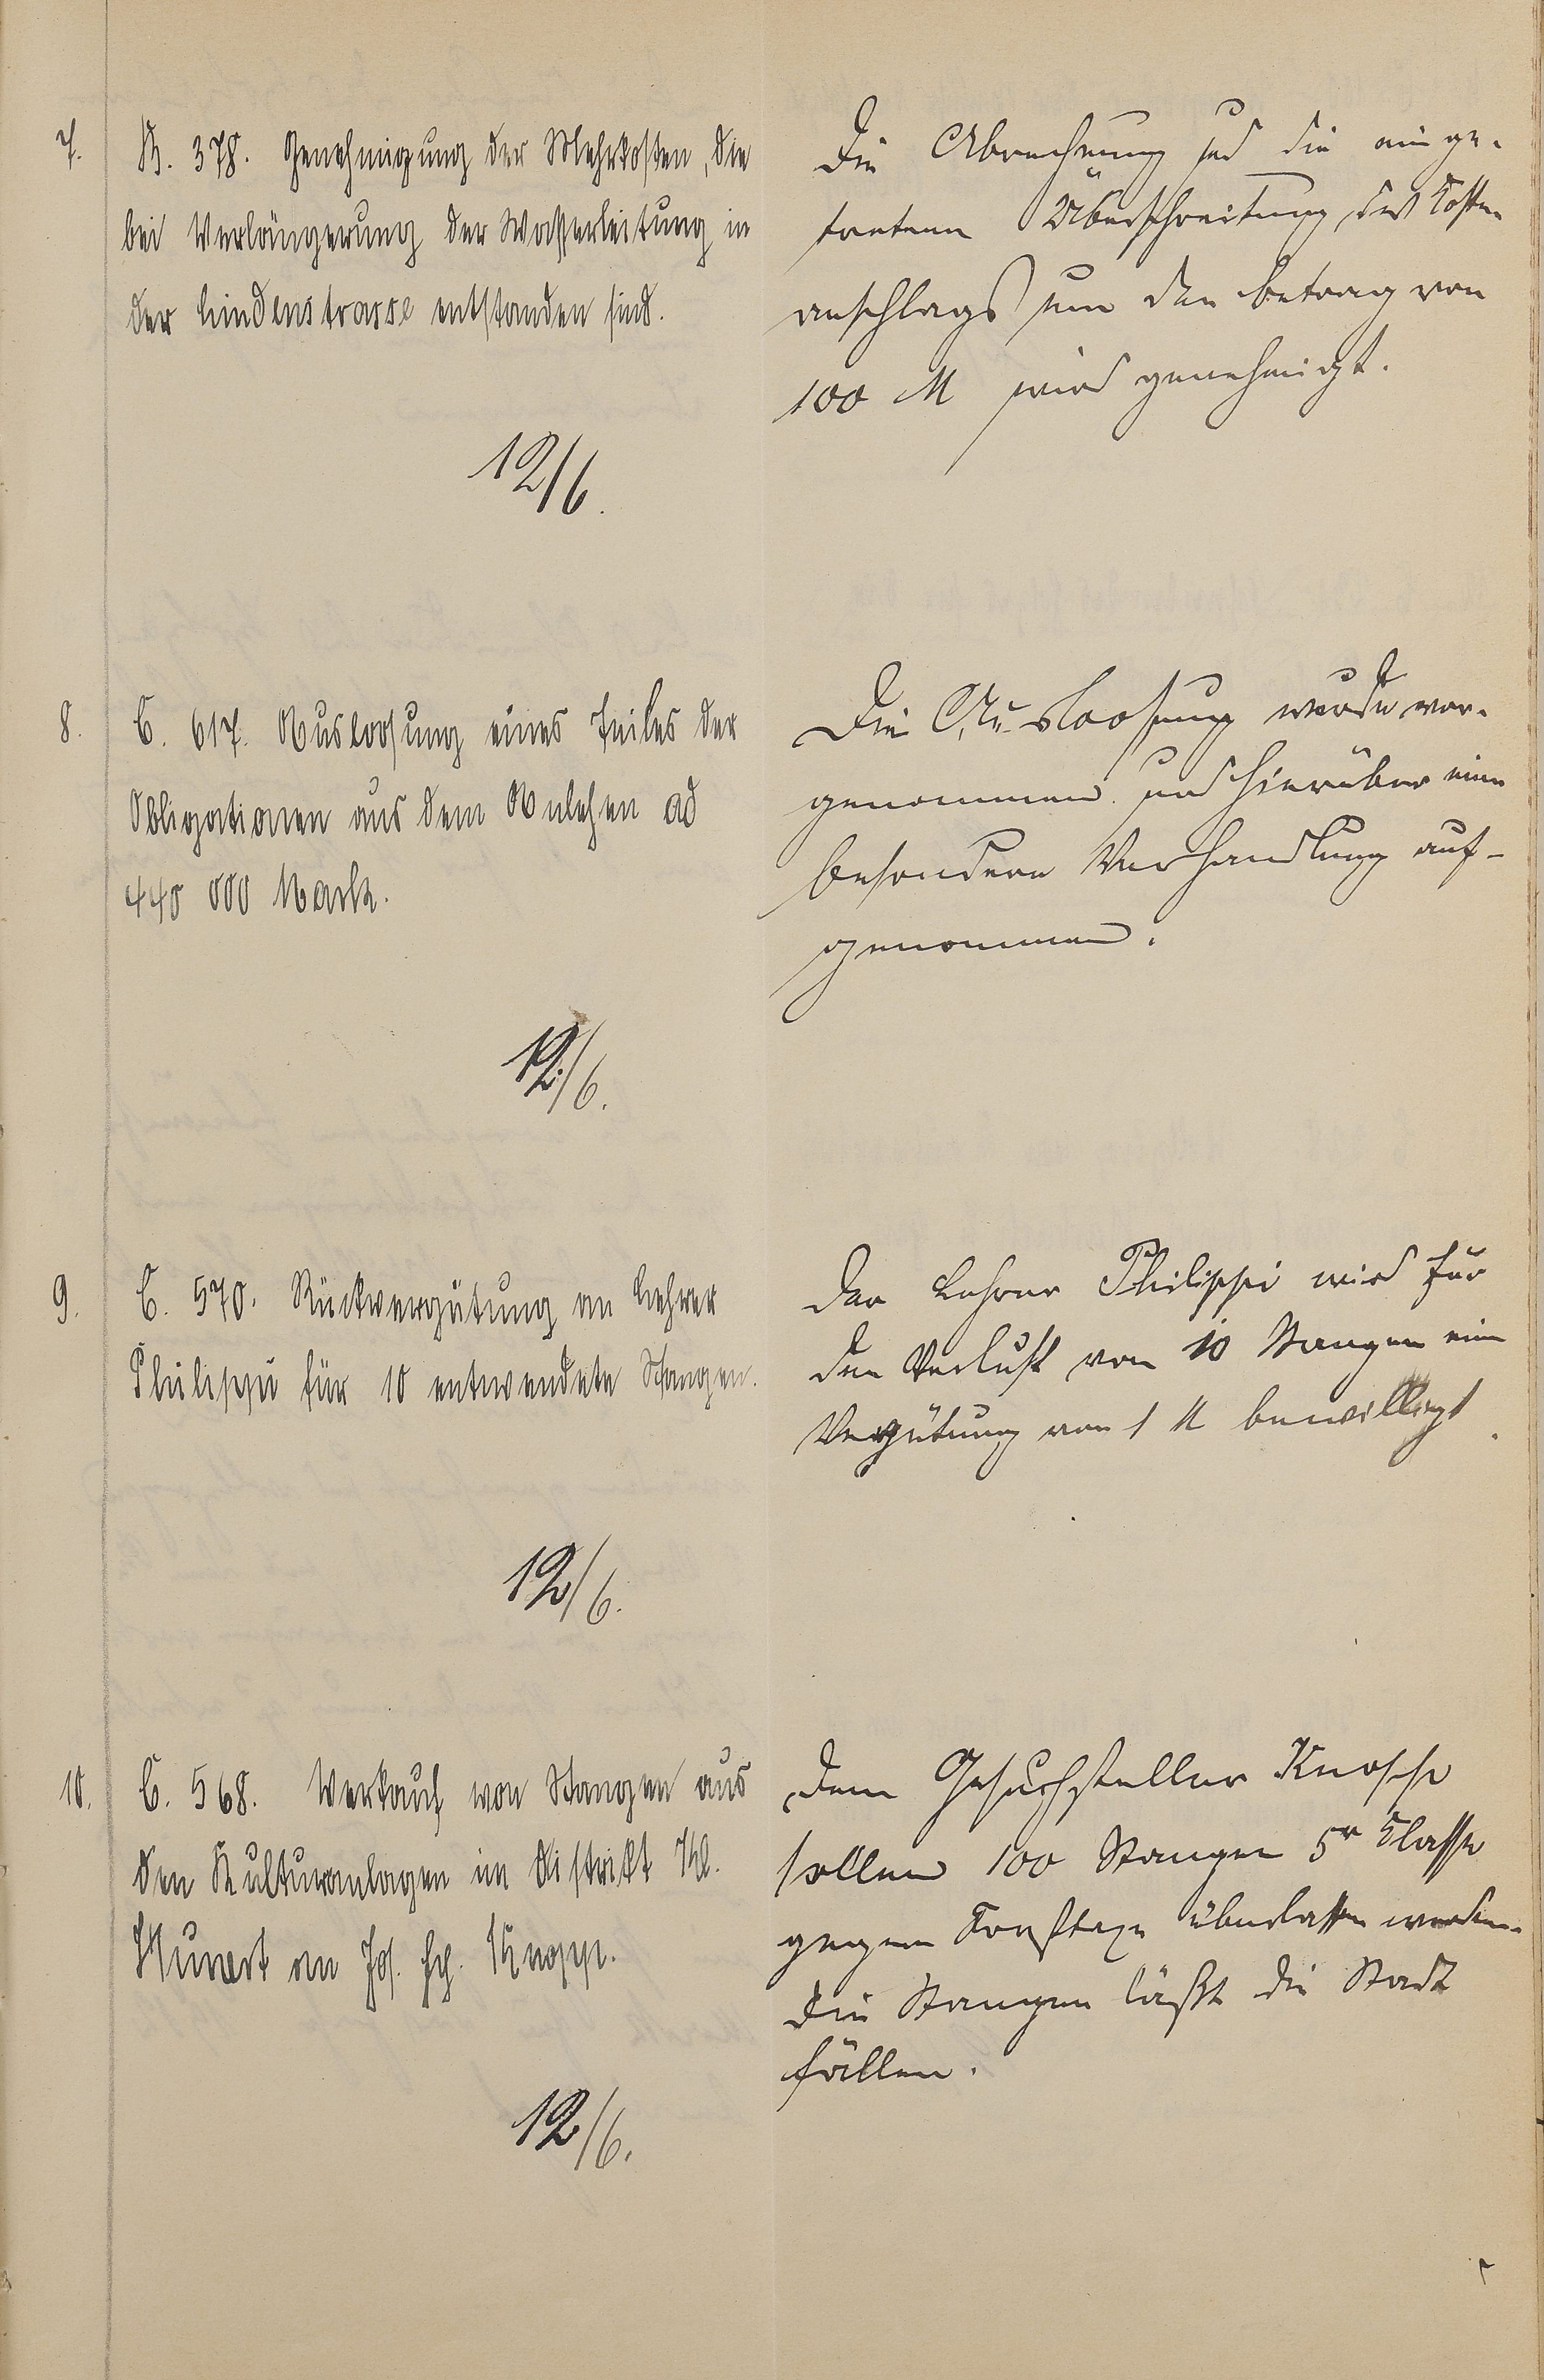 7.
B. 378. Genehmigung der Mehrkosten, die
bei Verlängerung der Wasserleitung in
der Lindenstrasse entstanden sind.
Die Abrechnung und die einge-
tretene Überschreitung des Kosten-
anschlags um den Betrag von
100 M wird genehmigt.
12/6.
8.
C. 617. Ausloosung eines Teiles der
Obligationen aus dem Anlehen ad
440 000 Mark.
Die Ausloosung wurde vor-
genommen und hierüber eine
besondere Verhandlung auf-
genommen.
12/6.
9.
C. 570. Rückvergütung an Lehrer
Philippi für 10 entwendete Stangen.
Der Lehrer Philippi wird für
den Verlust von 10 Stangen eine
Vergütung von 1 M bewilligt.
12/6.
10.
C. 568. Verkauf von Stangen aus
den Kulturanlagen im Distrikt Kl.
an Jos. Knopp.
Dem Gesuchsteller Knopp
sollen 100 Stangen 5r Klasse
gegen Forsttaxe überlassen werden.
Die Stangen läßt die Stadt
fällen.
12/6.